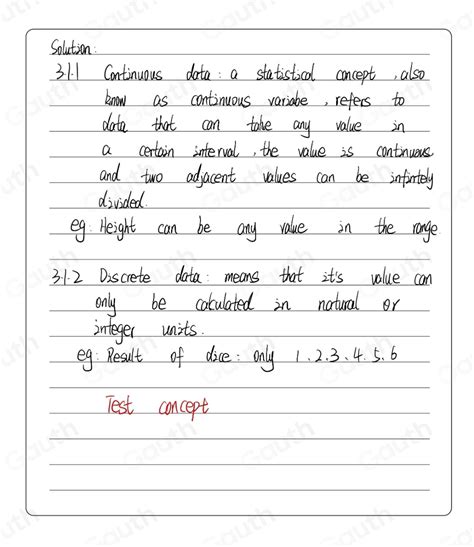 Solution:
3.1.1 Continuous data: a statistical concept, also
know as continuous variabe, refers to
data that can take any value in
a certain interval, the value is continuous
and two adjacent values can be infintely
divided.
eg: Height can be any value in the range.
3.1.2 Discrete data: means that it's value can
only be calculated in natural or
integer units.
eg: Result of dice: only 1.2.3.4.5.6
Test concept
Gauth